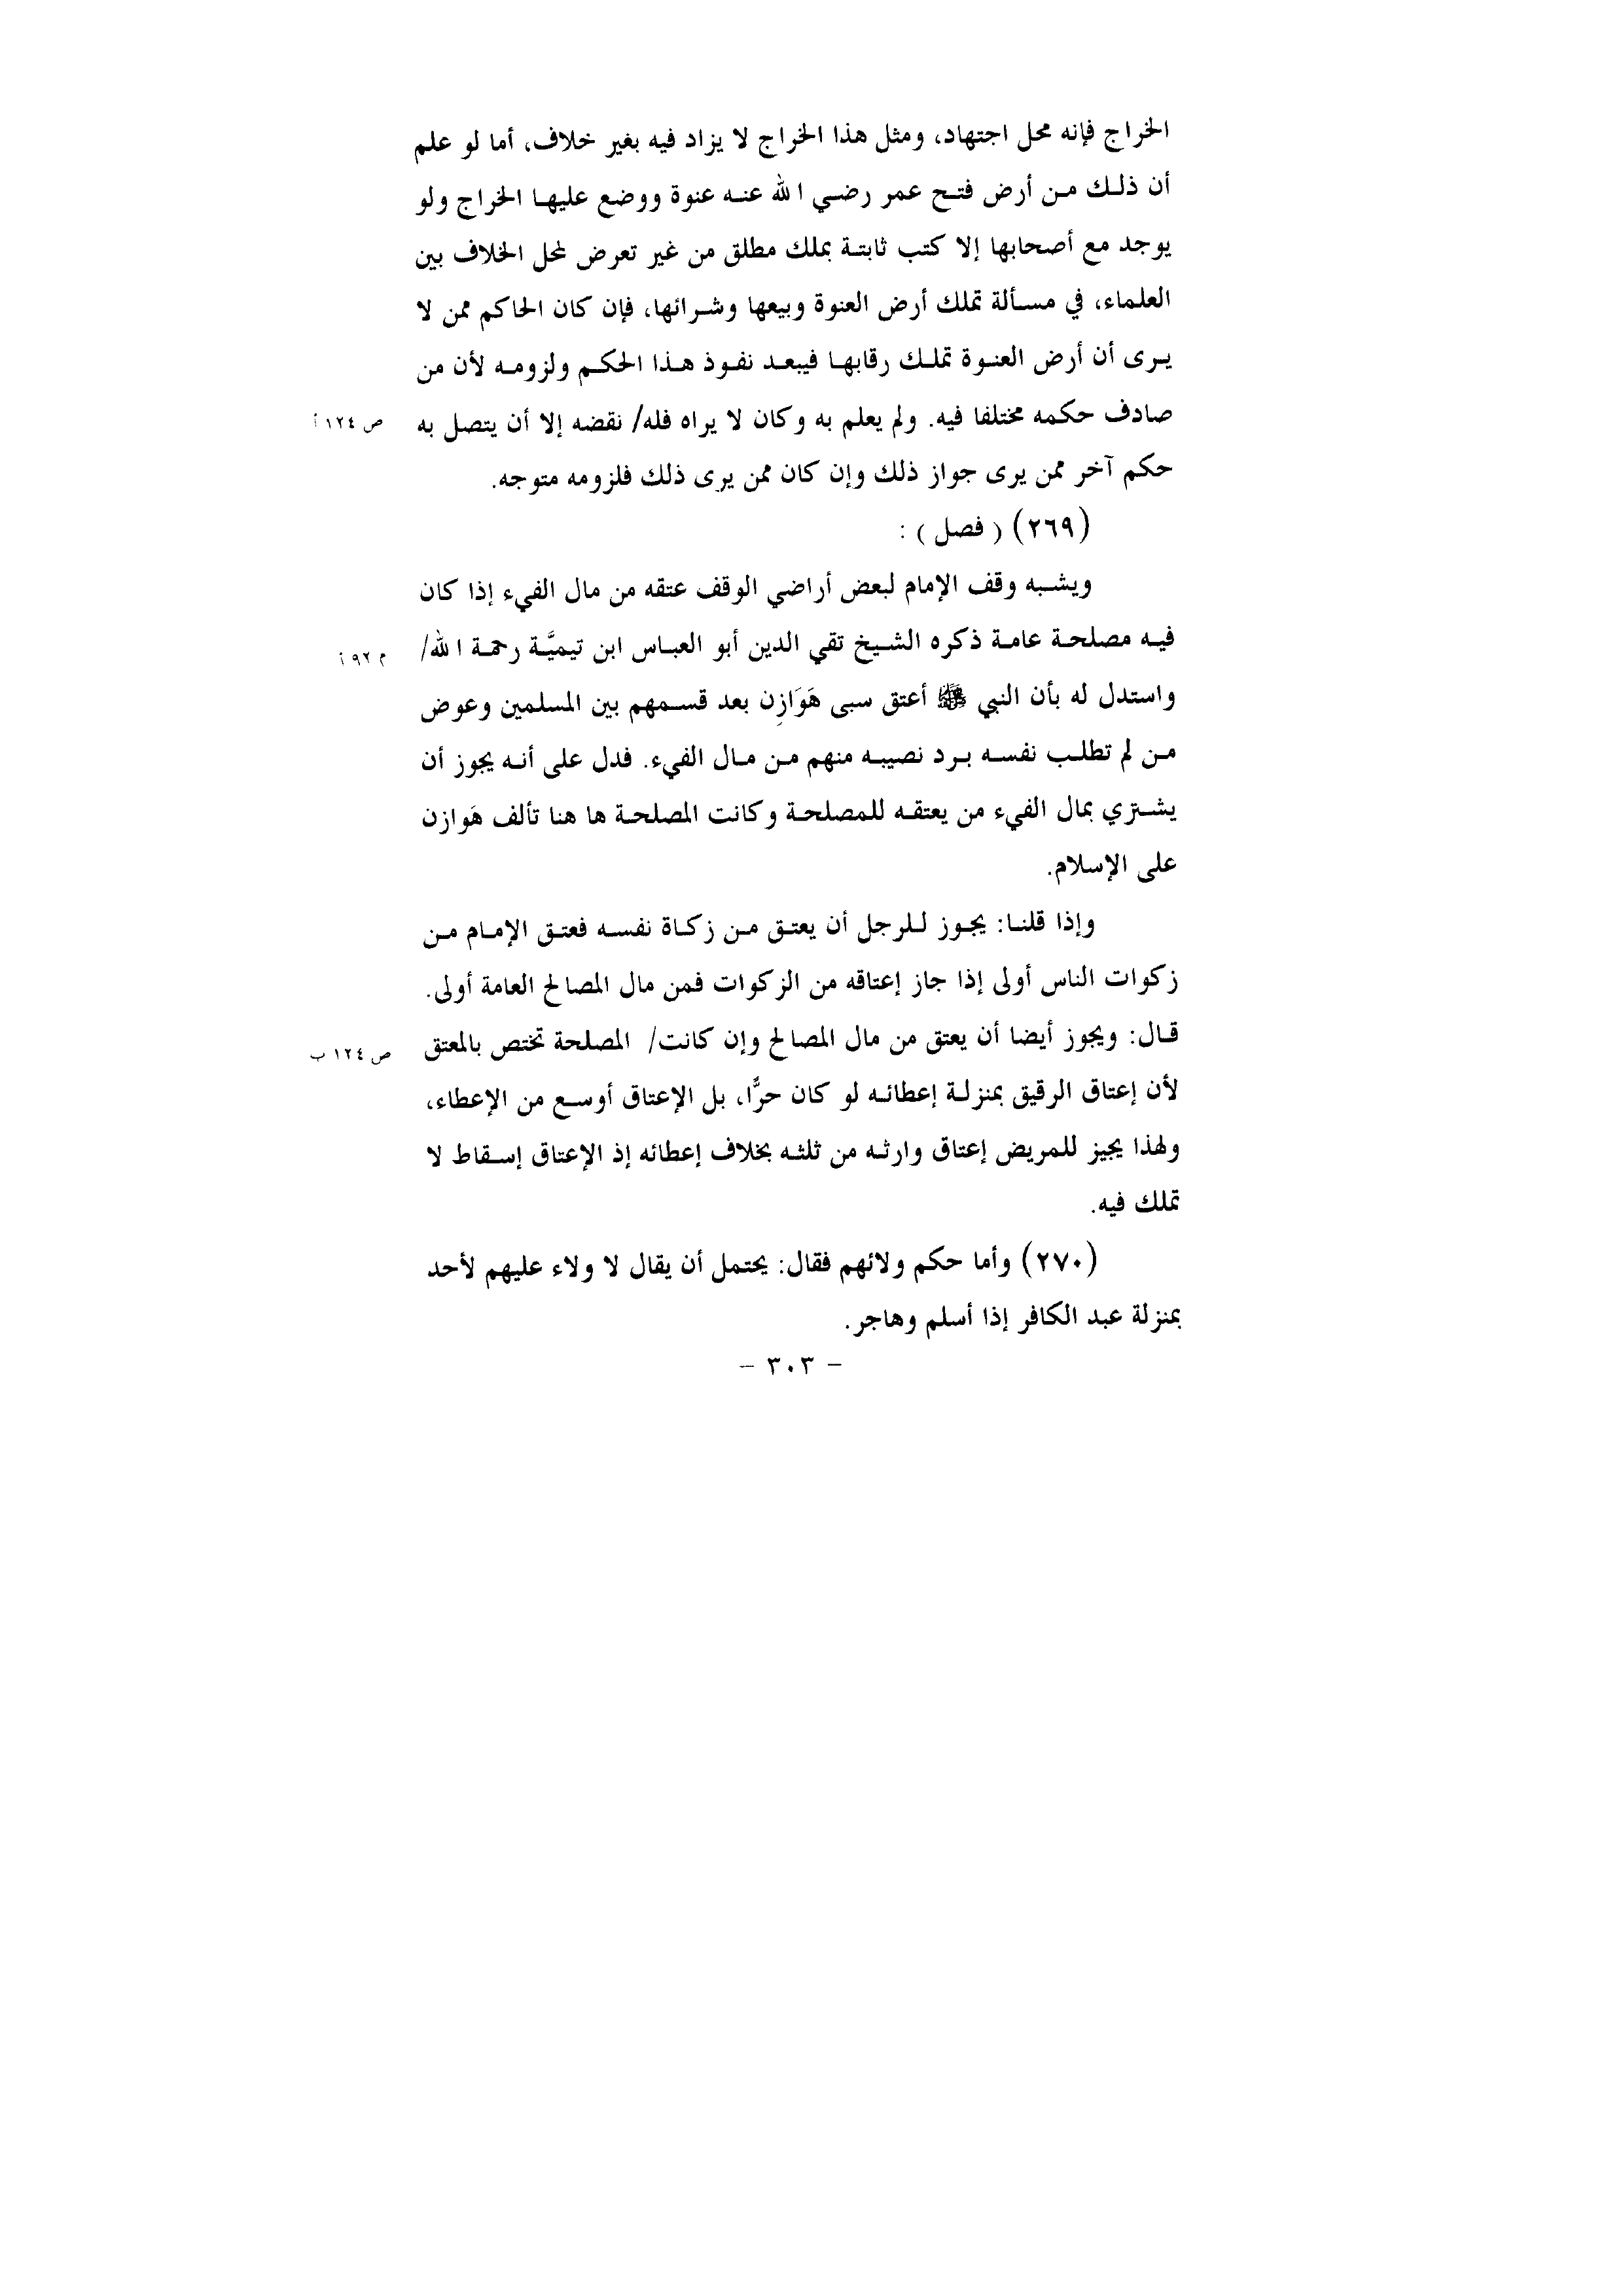 الخراج فإنه محل اجتهاد، ومثل هذا الخراج لا يزاد فيه بغير خلاف، أما لو علم
أن ذلك من أرض فتح عمر رضي الله عنه عنوة ووضع عليها الخراج ولو
يوجد مع أصحابها إلا كتب ثابتة بملك مطلق من غير تعرض لمحل الخلاف بين
العلماء، في مسألة تملك أرض العنوة وبيعها وشرائها، فإن كان الحاكم ممن لا
يرى أن أرض العنوة تملك رقابها فيبعد نفوذ هذا الحكم ولزومه لأن من
صادف حكمه مختلفا فيه. ولم يعلم به وكان لا يراه فله/ نقضه إلا أن يتصل به
ص ١٢٤ أ
حكم آخر ممن يرى جواز ذلك وإن كان ممن يرى ذلك فلزومه متوجه.
(٢٦٩) ( فصل ) :
ويشبه وقف الإمام لبعض أراضي الوقف عتقه من مال الفيء إذا كان
فيه مصلحة عامة ذكره الشيخ تقي الدين أبو العباس ابن تيميَّة رحمة الله/
م ٩٢ أ
واستدل له بأن النبي ﷺ أعتق سبى هَوَازِن بعد قسمهم بين المسلمين وعوض
من لم تطلب نفسه برد نصيبه منهم من مال الفيء. فدل على أنه يجوز أن
يشتري بمال الفيء من يعتقه للمصلحة وكانت المصلحة ها هنا تألف هَوازن
على الإسلام.
وإذا قلنا: يجوز للرجل أن يعتق من زكاة نفسه فعتق الإمام من
زكوات الناس أولى إذا جاز إعتاقه من الزكوات فمن مال المصالح العامة أولى.
قال: ويجوز أيضا أن يعتق من مال المصالح وإن كانت/ المصلحة تختص بالمعتق
ص ١٢٤ ب
لأن إعتاق الرقيق بمنزلة إعطائه لو كان حرًّا، بل الإعتاق أوسع من الإعطاء،
ولهذا يجيز للمريض إعتاق وارثه من ثلثه بخلاف إعطائه إذ الإعتاق إسقاط لا
تملك فيه.
(٢٧٠) وأما حكم ولائهم فقال: يحتمل أن يقال لا ولاء عليهم لأحد
بمنزلة عبد الكافر إذا أسلم وهاجر.
– ٣٠٣ –